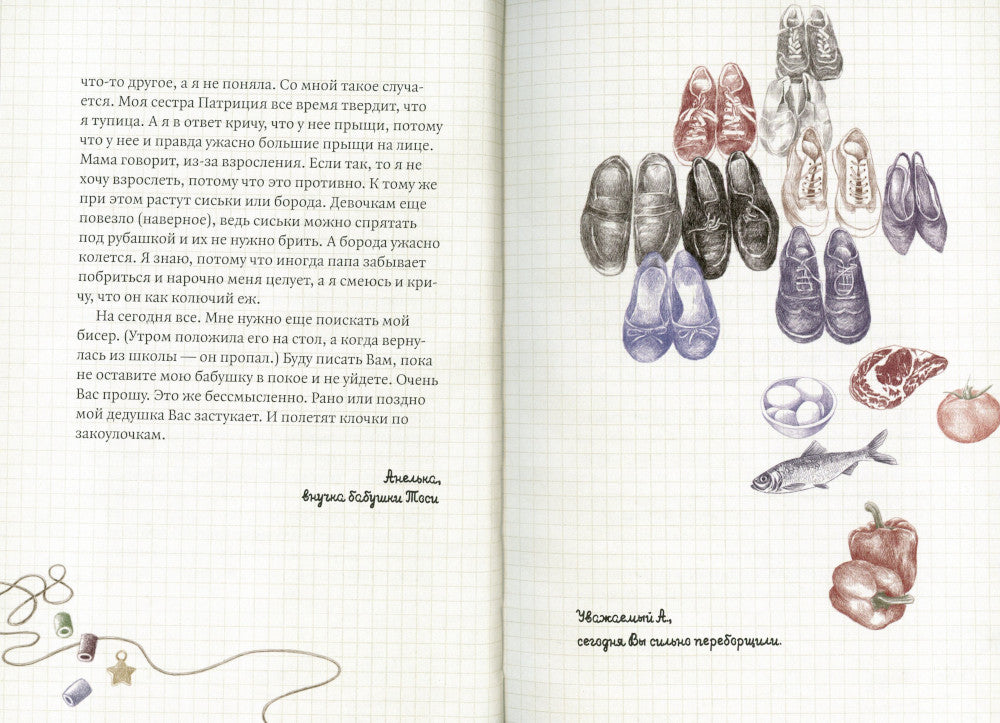 что-то другое, а я не поняла. Со мной такое случа-
ется. Моя сестра Патриция все время твердит, что
я тупица. А я в ответ кричу, что у нее прыщи, потому
что у нее и правда ужасно большие прыщи на лице.
Мама говорит, из-за взросления. Если так, то я не
хочу взрослеть, потому что это противно. К тому же
при этом растут сиськи или борода. Девочкам еще
повезло (наверное), ведь сиськи можно спрятать
под рубашкой и их не нужно брить. А борода ужасно
колется. Я знаю, потому что иногда папа забывает
побриться и нарочно меня целует, а я смеюсь и кри-
чу, что он как колючий еж.
На сегодня все. Мне нужно еще поискать мой
бисер. (Утром положила его на стол, а когда верну-
лась из школы — он пропал.) Буду писать Вам, пока
не оставите мою бабушку в покое и не уйдете. Очень
Вас прошу. Это же бессмысленно. Рано или поздно
мой дедушка Вас застукает. И полетят клочки по
закоулочкам.
Анелька,
внучка бабушки Тоси
Уважаемый А.,
сегодня Вы сильно переборщили.